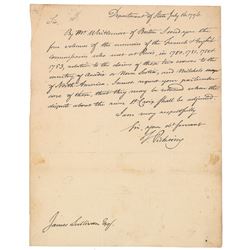 Department of State July 16. 1796.
Sir,
By Mr. Whitteman of Boston I send you the
four volumes of the memoirs of the French & English
Commissaries who met at Paris, in 1750. 1751. 1752 &
1753, relative to the claims of those two crowns to the
country of Acadia or Nova Scotia; and Mitchels map
of North America. I must request your particular
care of these, that they may be returned when the
dispute about the river St. Croix shall be adjusted.
I am very respectfully
Sir, your ob. servant
T. Pickering
James Sullivan Esq.